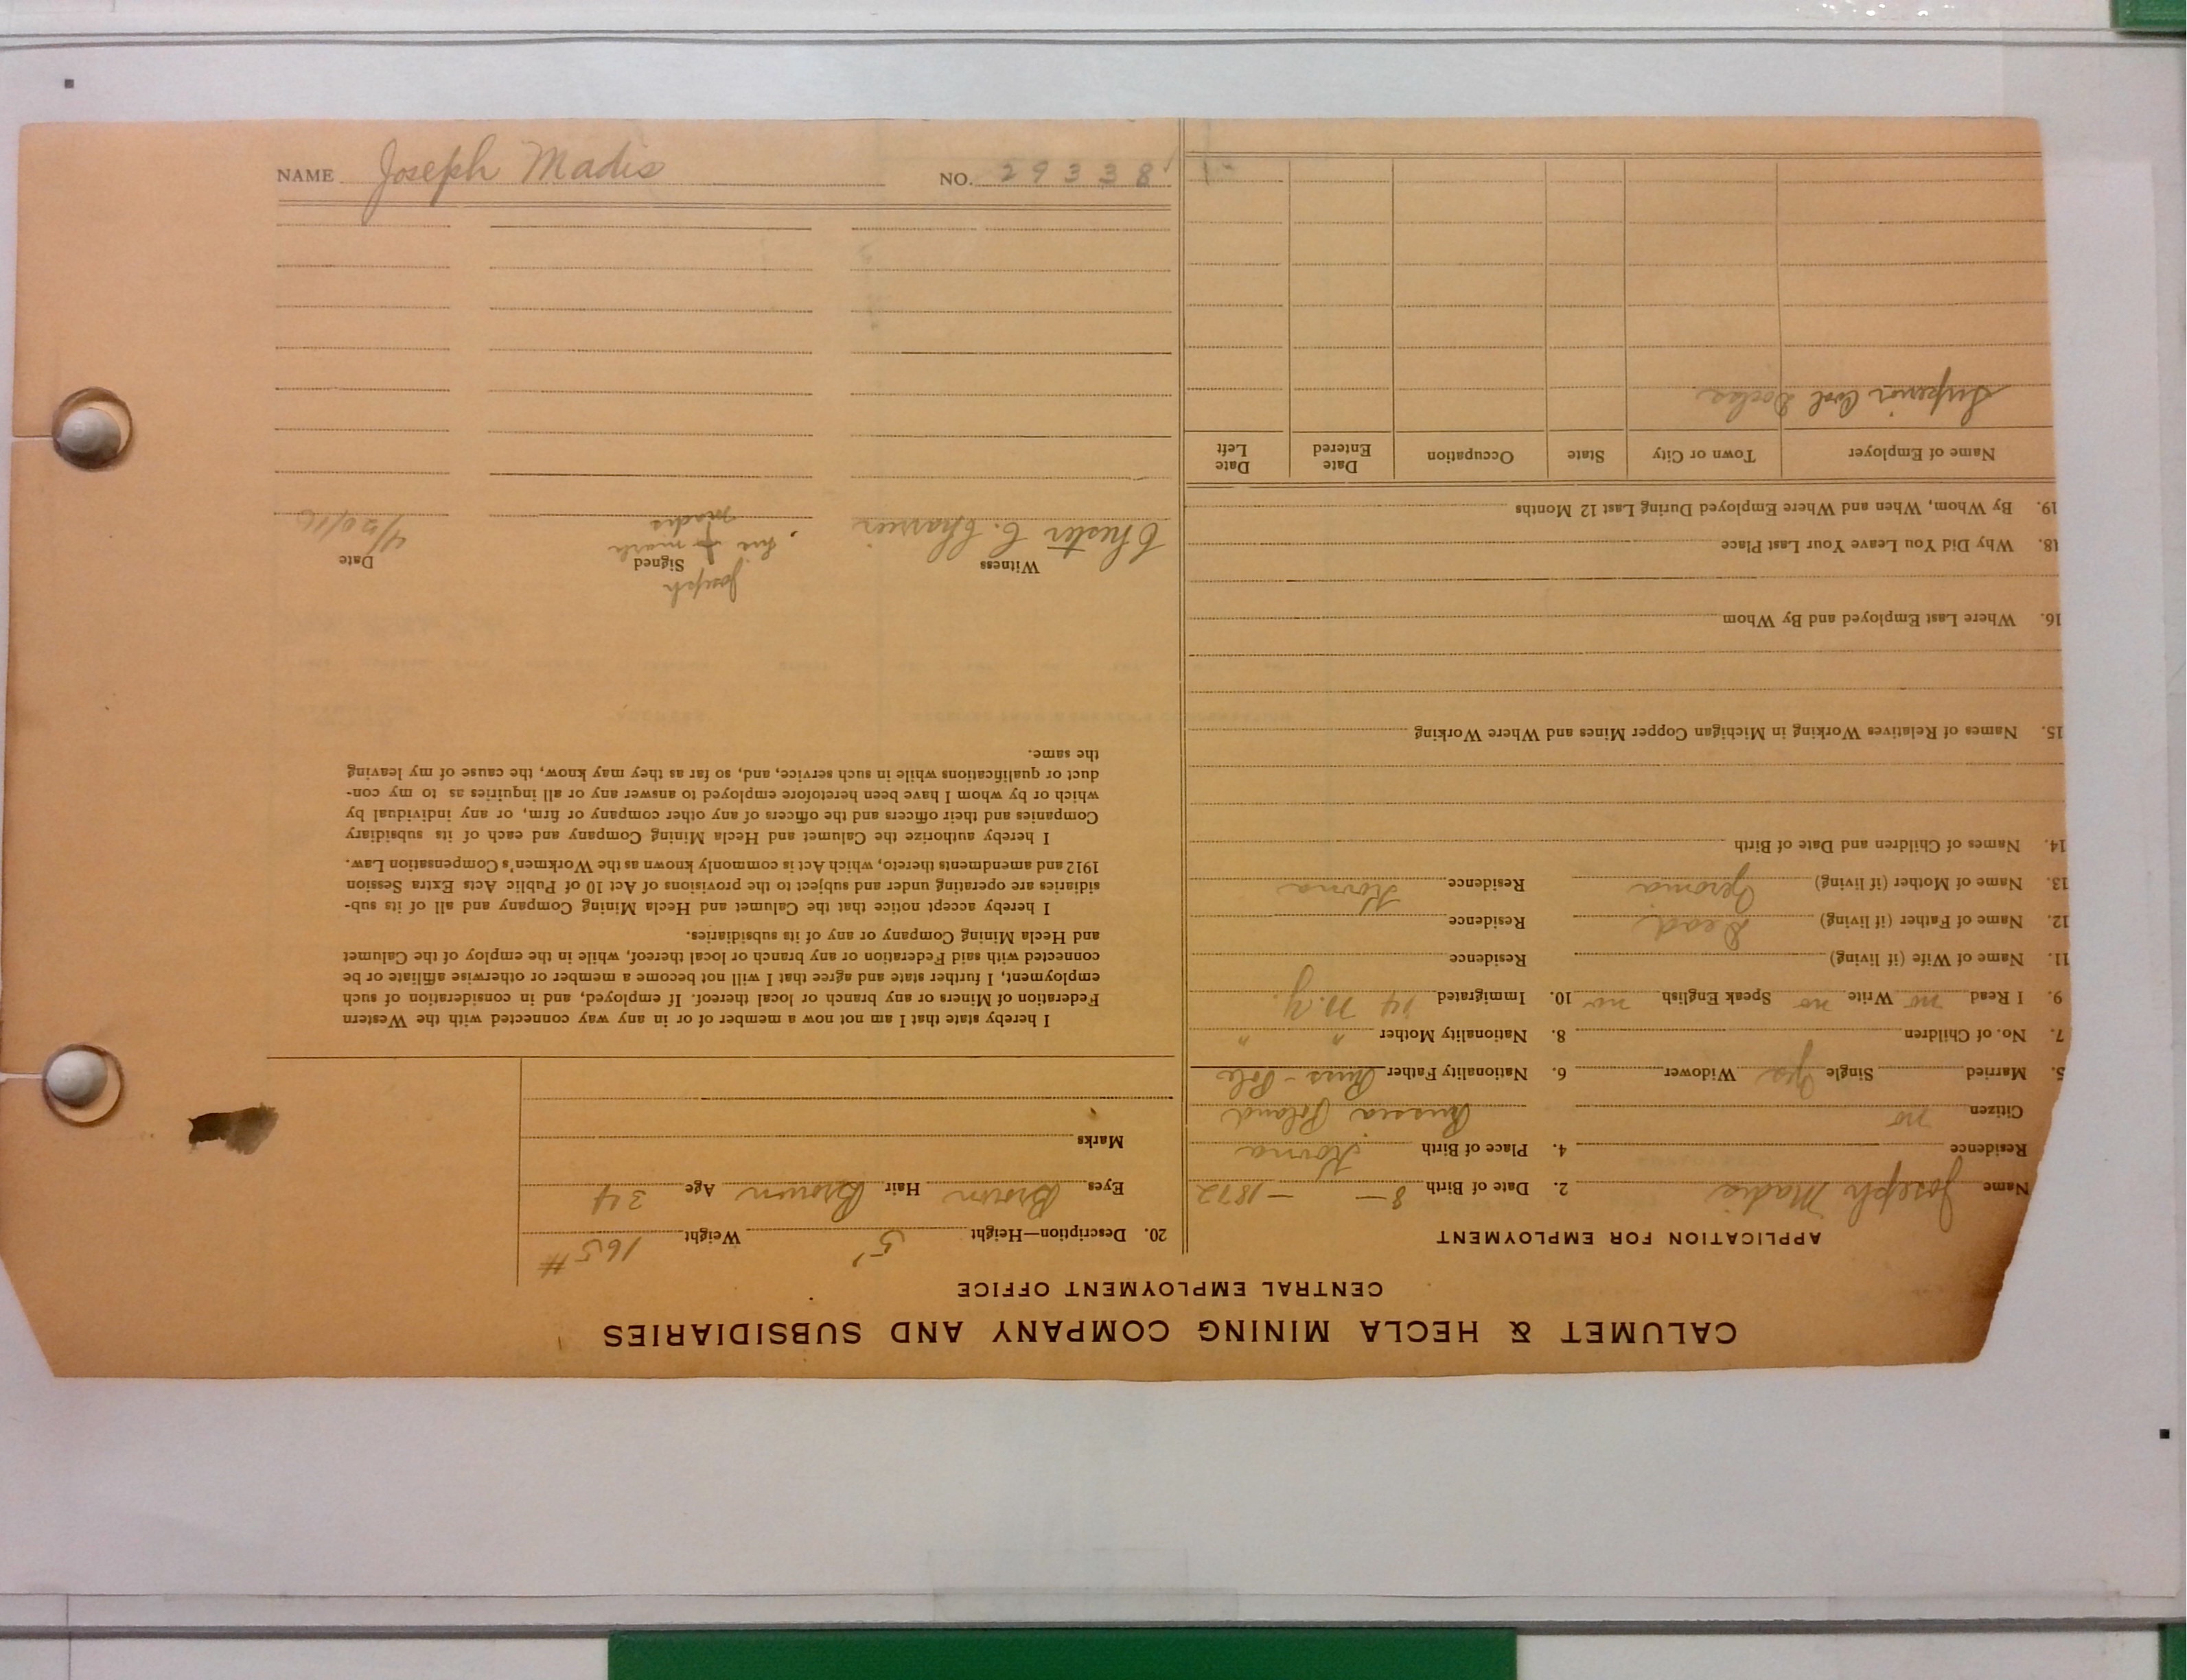 NAME Joseph Madis NO. 29338
CALUMET & HECLA MINING COMPANY AND SUBSIDIARIES
CENTRAL EMPLOYMENT OFFICE
APPLICATION FOR EMPLOYMENT
Name Joseph Madis 2. Date of Birth 8 — — 1872
Residence 4. Place of Birth Kovna
Citizen no Russia Poland
5. Married Single Yes Widower 6. Nationality Father Russ-Pole
7. No. of Children 8. Nationality Mother " "
9. I Read no Write no Speak English no 10. Immigrated 14 N.Y.
11. Name of Wife (if living) Residence
12. Name of Father (if living) Dead Residence
13. Name of Mother (if living) Residence Kovna
14. Names of Children and Date of Birth
15. Names of Relatives Working in Michigan Copper Mines and Where Working
16. Where Last Employed and By Whom
18. Why Did You Leave Your Last Place
19. By Whom, When and Where Employed During Last 12 Months
Name of Employer Town or City State Occupation Date Entered Date Left
Superior Coal Docks
20. Description—Height 5' Weight 165#
Eyes Brown Hair Brown Age 34
Marks
I hereby state that I am not now a member of or in any way connected with the Western
Federation of Miners or any branch or local thereof. If employed, and in consideration of such
employment, I further state and agree that I will not become a member or otherwise affiliate or be
connected with said Federation or any branch or local thereof, while in the employ of the Calumet
and Hecla Mining Company or any of its subsidiaries.
I hereby accept notice that the Calumet and Hecla Mining Company and all of its sub-
sidiaries are operating under and subject to the provisions of Act 10 of Public Acts Extra Session
1912 and amendments thereto, which Act is commonly known as the Workmen's Compensation Law.
I hereby authorize the Calumet and Hecla Mining Company and each of its subsidiary
Companies and their officers and the officers of any other company or firm, or any individual by
which or by whom I have been heretofore employed to answer any or all inquiries as to my con-
duct or qualifications while in such service, and, so far as they may know, the cause of my leaving
the same.
Witness Signed Date
Joseph
Chester C. his + mark 4/20/16
Madis